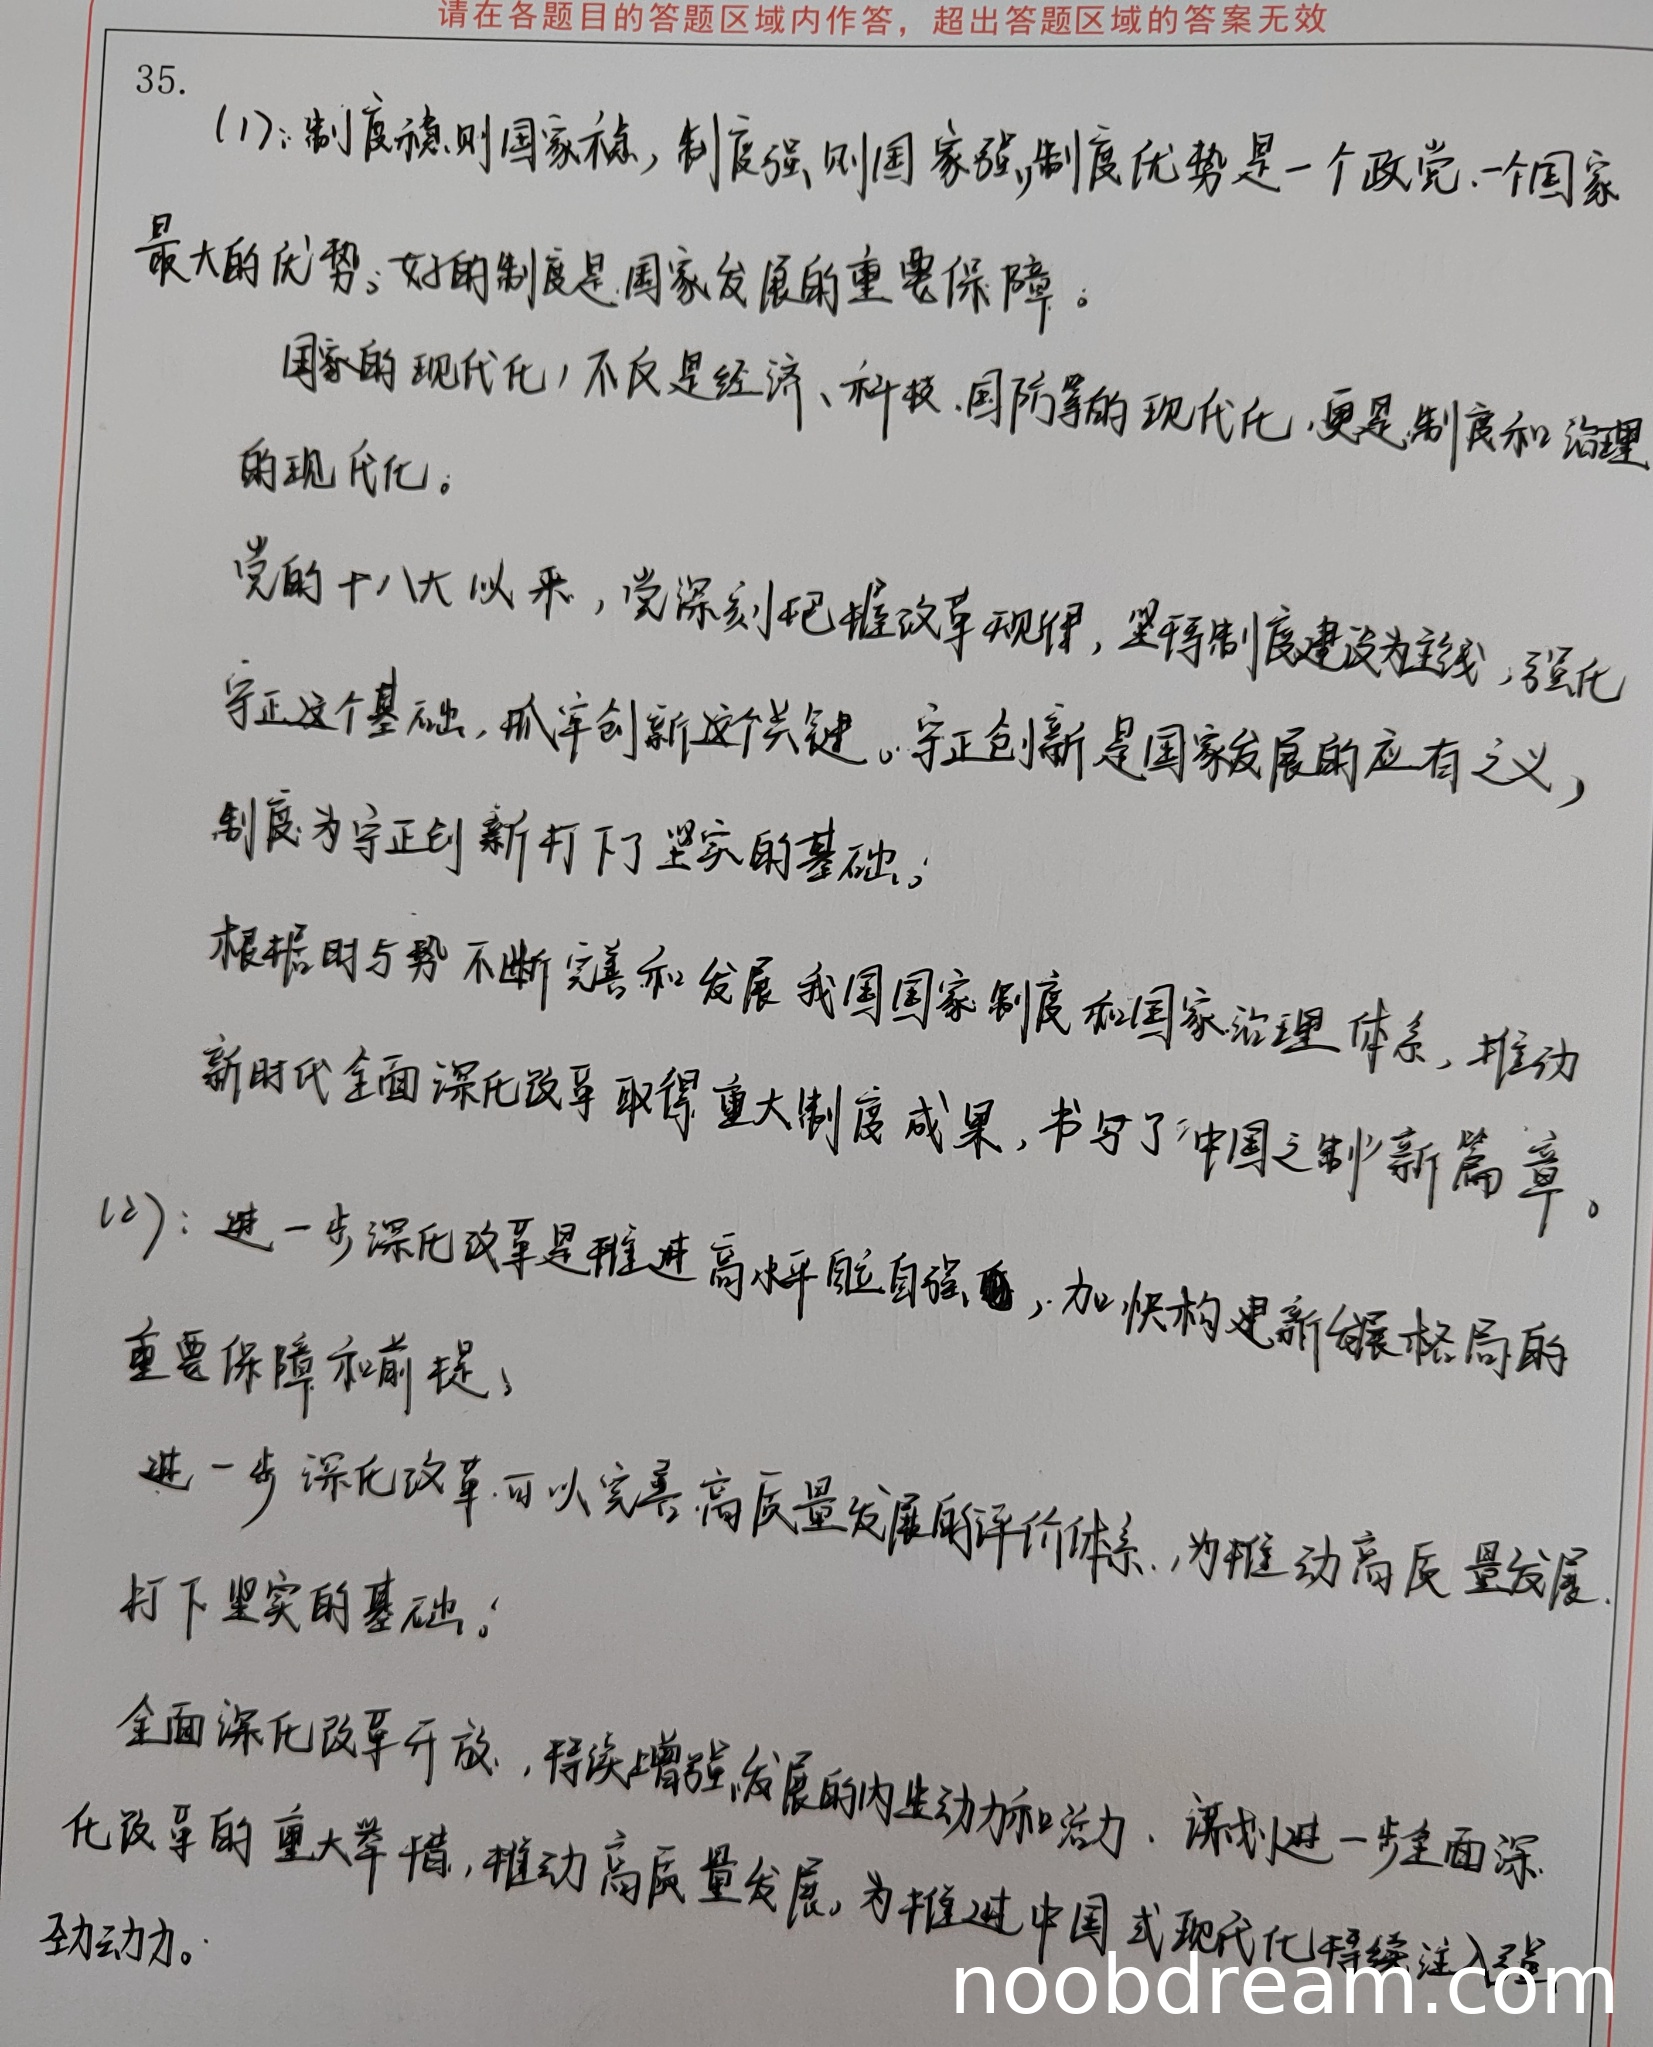 请在各题目的答题区域内作答，超出答题区域的答案无效
35.
(1)：制度稳则国家稳，制度强则国家强，制度优势是一个政党、一个国家
最大的优势；好的制度是国家发展的重要保障。
国家的现代化，不仅是经济、科技、国防等的现代化，更是制度和治理
的现代化。
党的十八大以来，党深刻把握改革规律，坚持制度建设为主线，强化
守正这个基础，抓牢创新这个关键。守正创新是国家发展的应有之义，
制度为守正创新打下了坚实的基础；
根据时与势不断完善和发展我国国家制度和国家治理体系，推动
新时代全面深化改革取得重大制度成果，书写了“中国之制”新篇章。
(2)：进一步深化改革是推进高水平自立自强，加快构建新发展格局的
重要保障和前提；
进一步深化改革可以完善高质量发展的评价体系，为推动高质量发展
打下坚实的基础；
全面深化改革开放，持续增强发展的内生动力和活力、谋划进一步全面深
化改革的重大举措，推动高质量发展，为推进中国式现代化持续注入强
劲动力。
noobdream.com